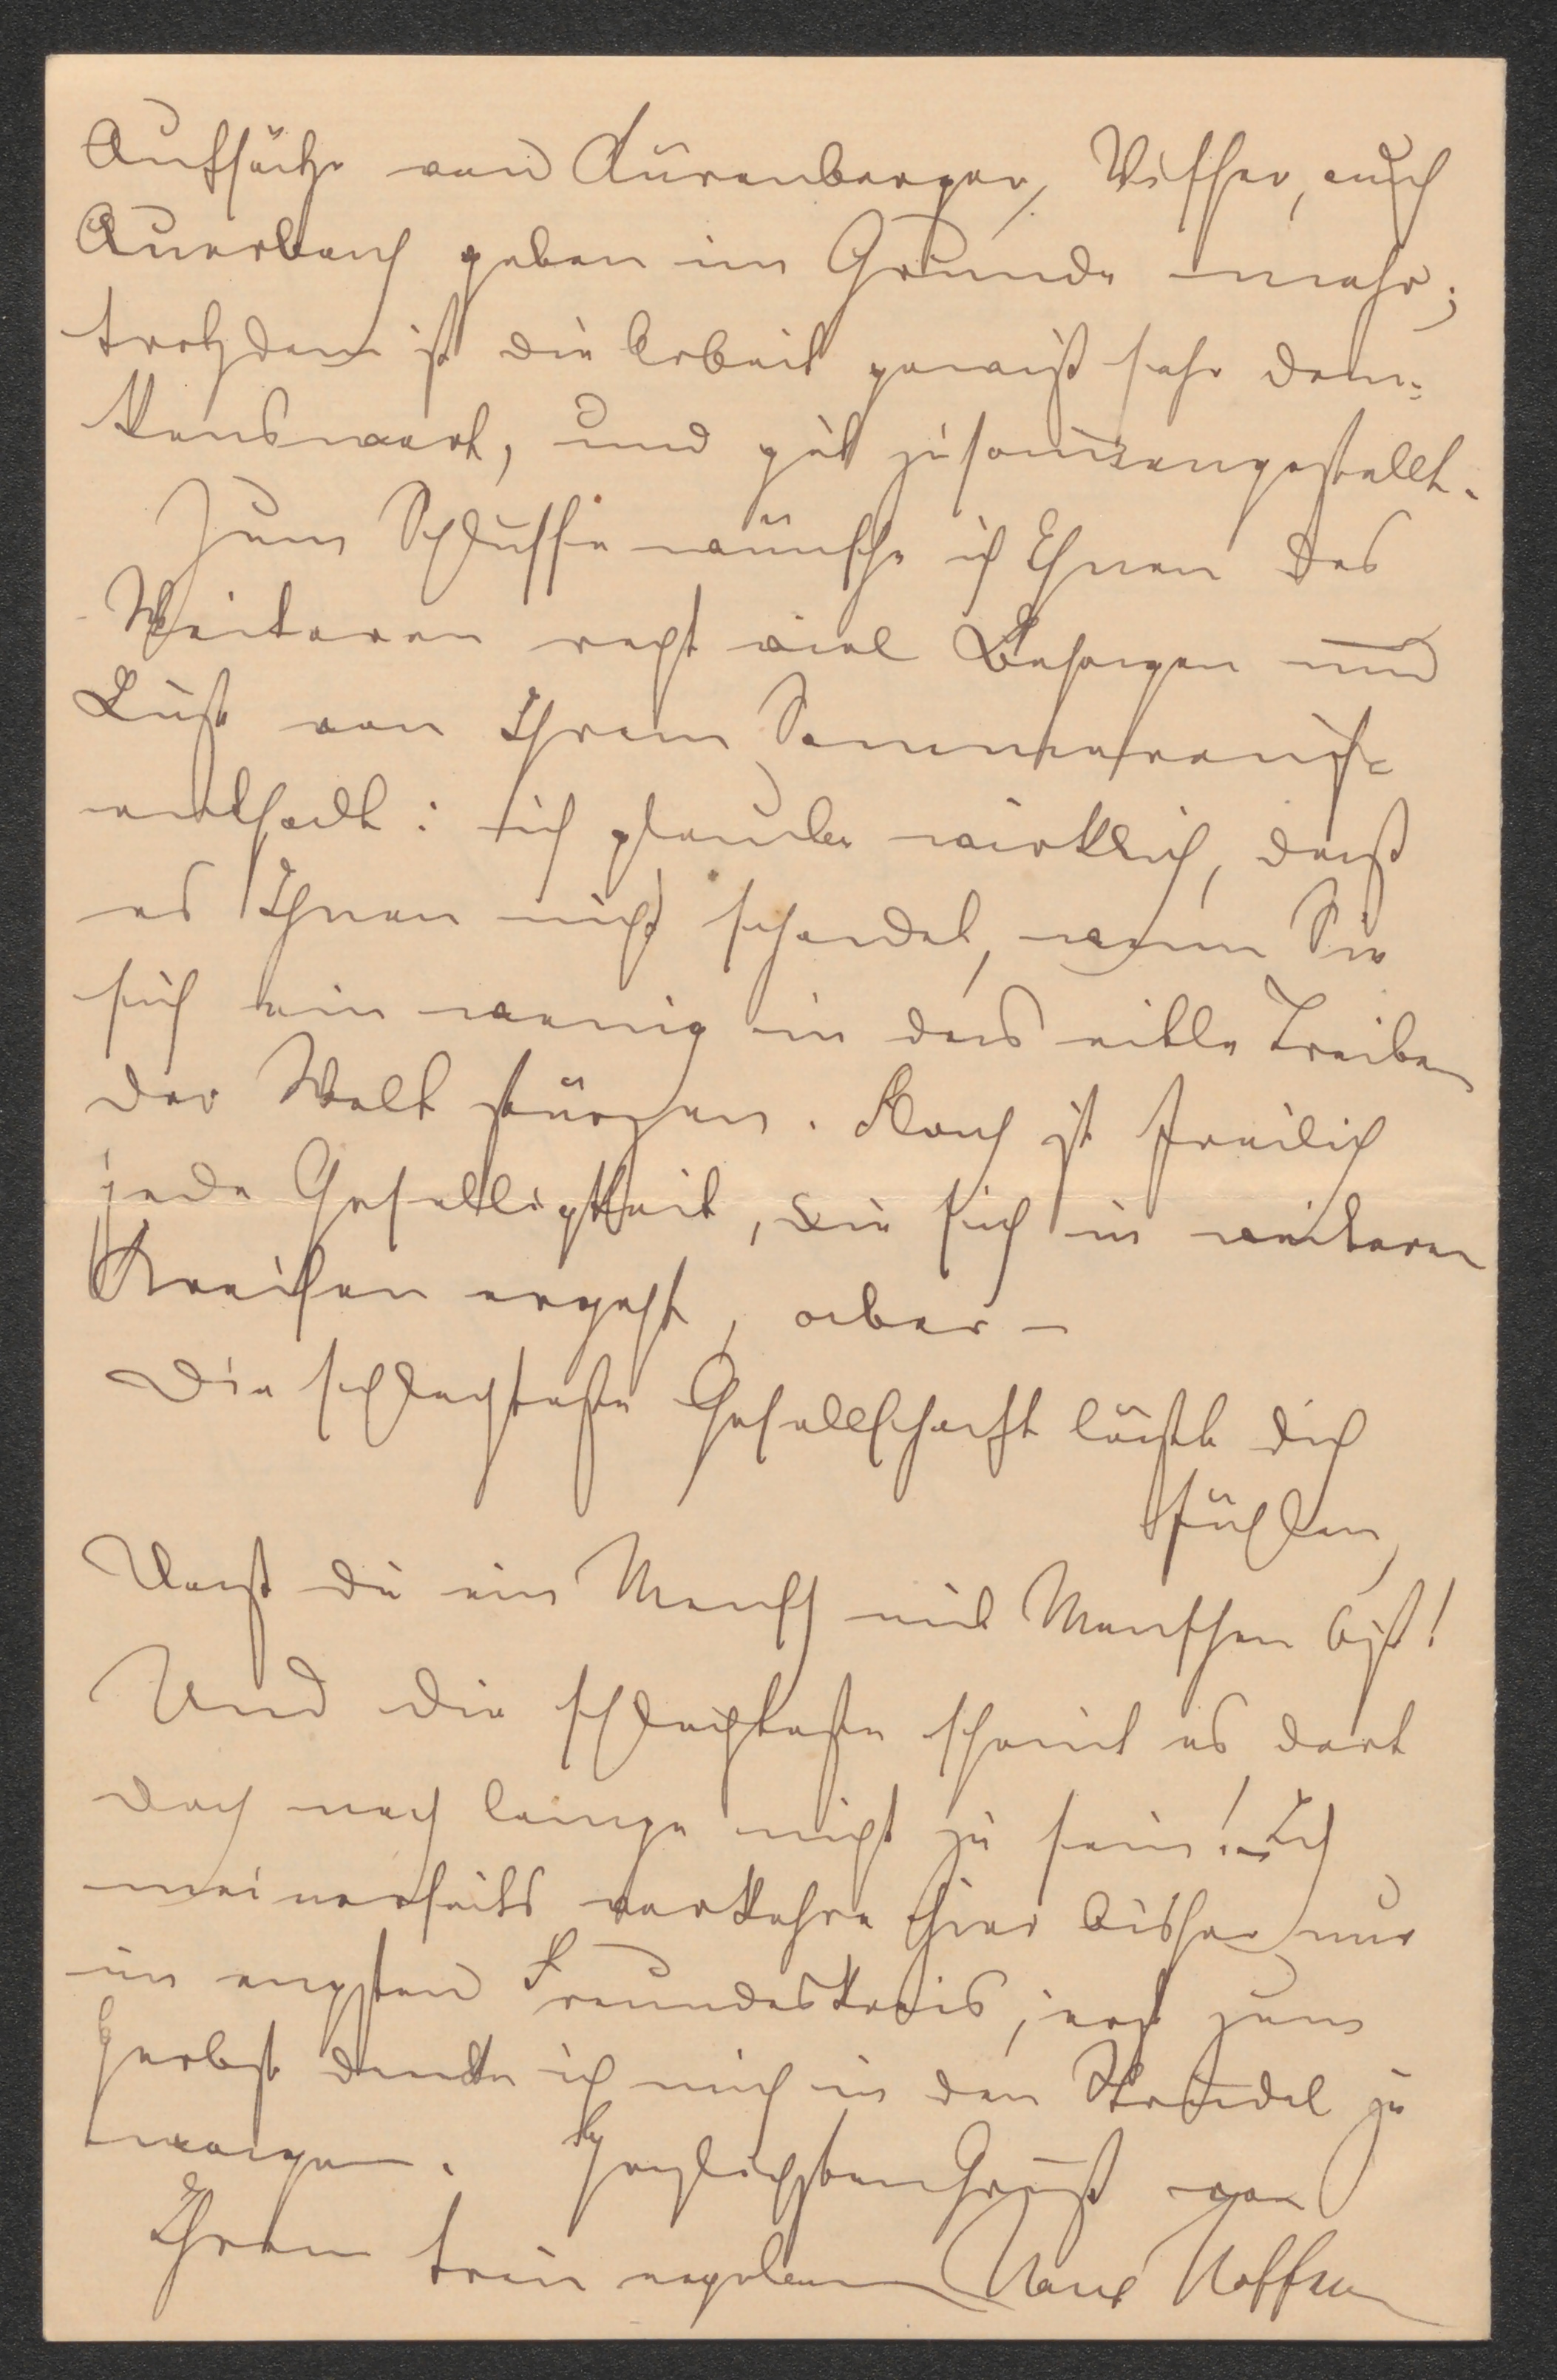 Aufsätze von Kürenberger, Vischer, auch
Auerbach geben im Grunde mehr;
trotzdem ist die Arbeit gewiß sehr dan-
kenswert, und gut zusammengestellt.
Zum Schlusse wünsche ich Ihnen des
Weiteren recht viel Behagen und
Lust von Ihrem Sommerauf-
enthalt: ich glaube wirklich, daß
es Ihnen nicht schadet, wenn Sie
sich ein wenig in das eitle Treiben
der Welt stürzen. Flach ist freilich
jede Geselligkeit, die sich in weiteren
Kreisen ergeht, aber –
Die schlechteste Gesellschaft läßt dich
fühlen,
Daß du ein Mensch mit Menschen bist!
Und die schlechteste scheint es dort
doch noch lange nicht zu sein! – Ich
meinerseits verkehre hier bisher nur
im engsten Freundeskreis, erst zum
Herbst denke ich mich in den Strudel zu
wagen. Herzlichsten Gruß von
Ihrem treu ergebenen Hans Hoffmann